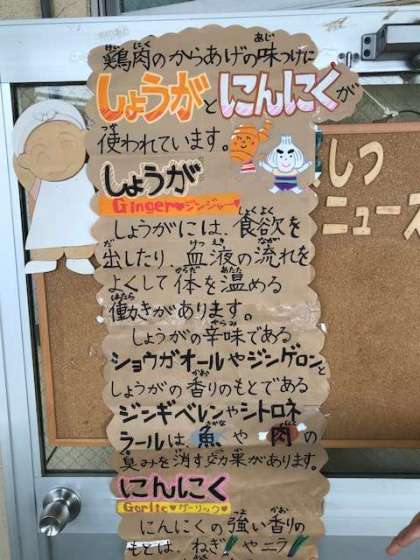 鶏肉のからあげの味つけに
しょうがとにんにくが
使われています。
しょうが
Ginger♥ジンジャー♥
しょうがには、食欲を
出したり、血液の流れを
よくして体を温める
働きがあります。
しょうがの辛味である
ショウガオールやジンゲロンと
しょうがの香りのもとである
ジンギベレンやシトロネ
ラールは魚や肉の
臭みを消す効果があります。
にんにく
Garlic♥ガーリック♥
にんにくの強い香りの
もとは、ねぎやニラ
しつ
ニュース